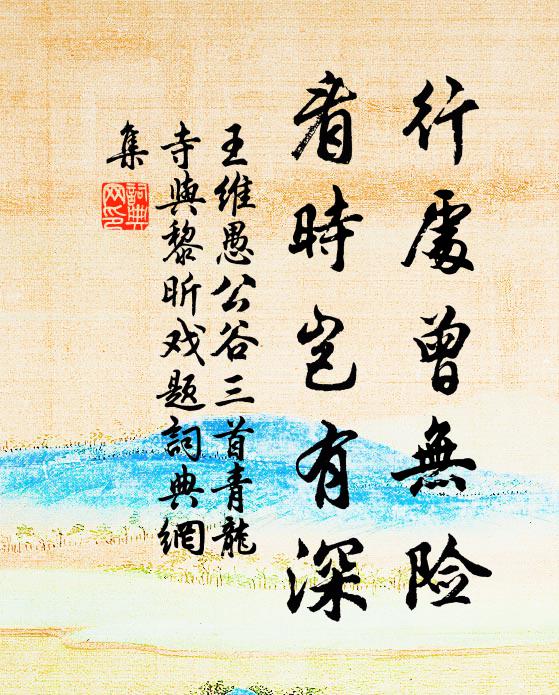 行處曾無险
看時岂有深
王维愚公谷三首青龍
寺與黎昕戏题詞典網
集
詞典網印